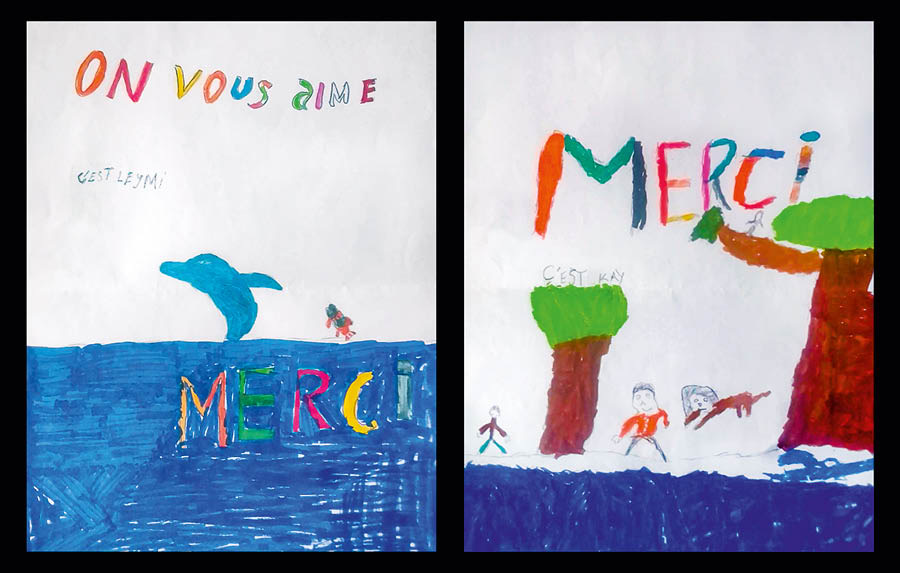 ON VOUS aIME
C'EST LEYMi
MERCi
MERCi
C'EST KAY